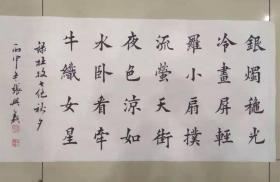 銀燭穐光
冷畫屏輕
羅小扇撲
流螢天街
夜色涼如
水卧看牽
牛織女星
録杜牧七绝秋夕
丙申